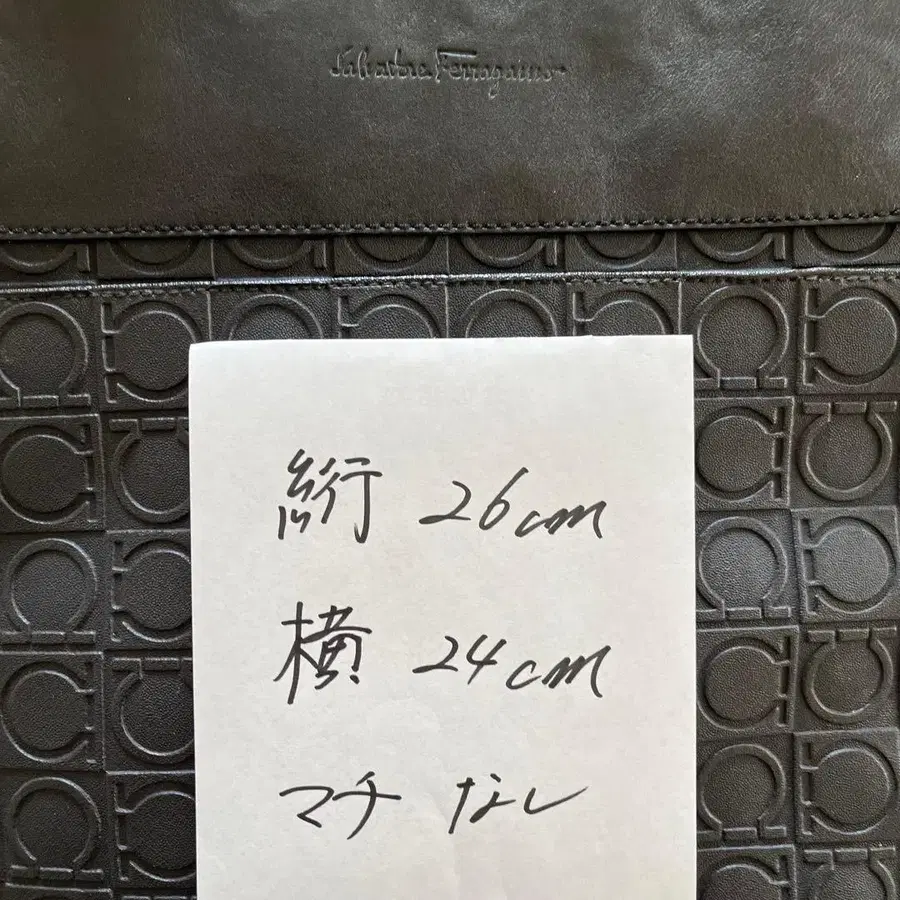 Salvatore Ferragamo
絎 26cm
横 24cm
マチ なし